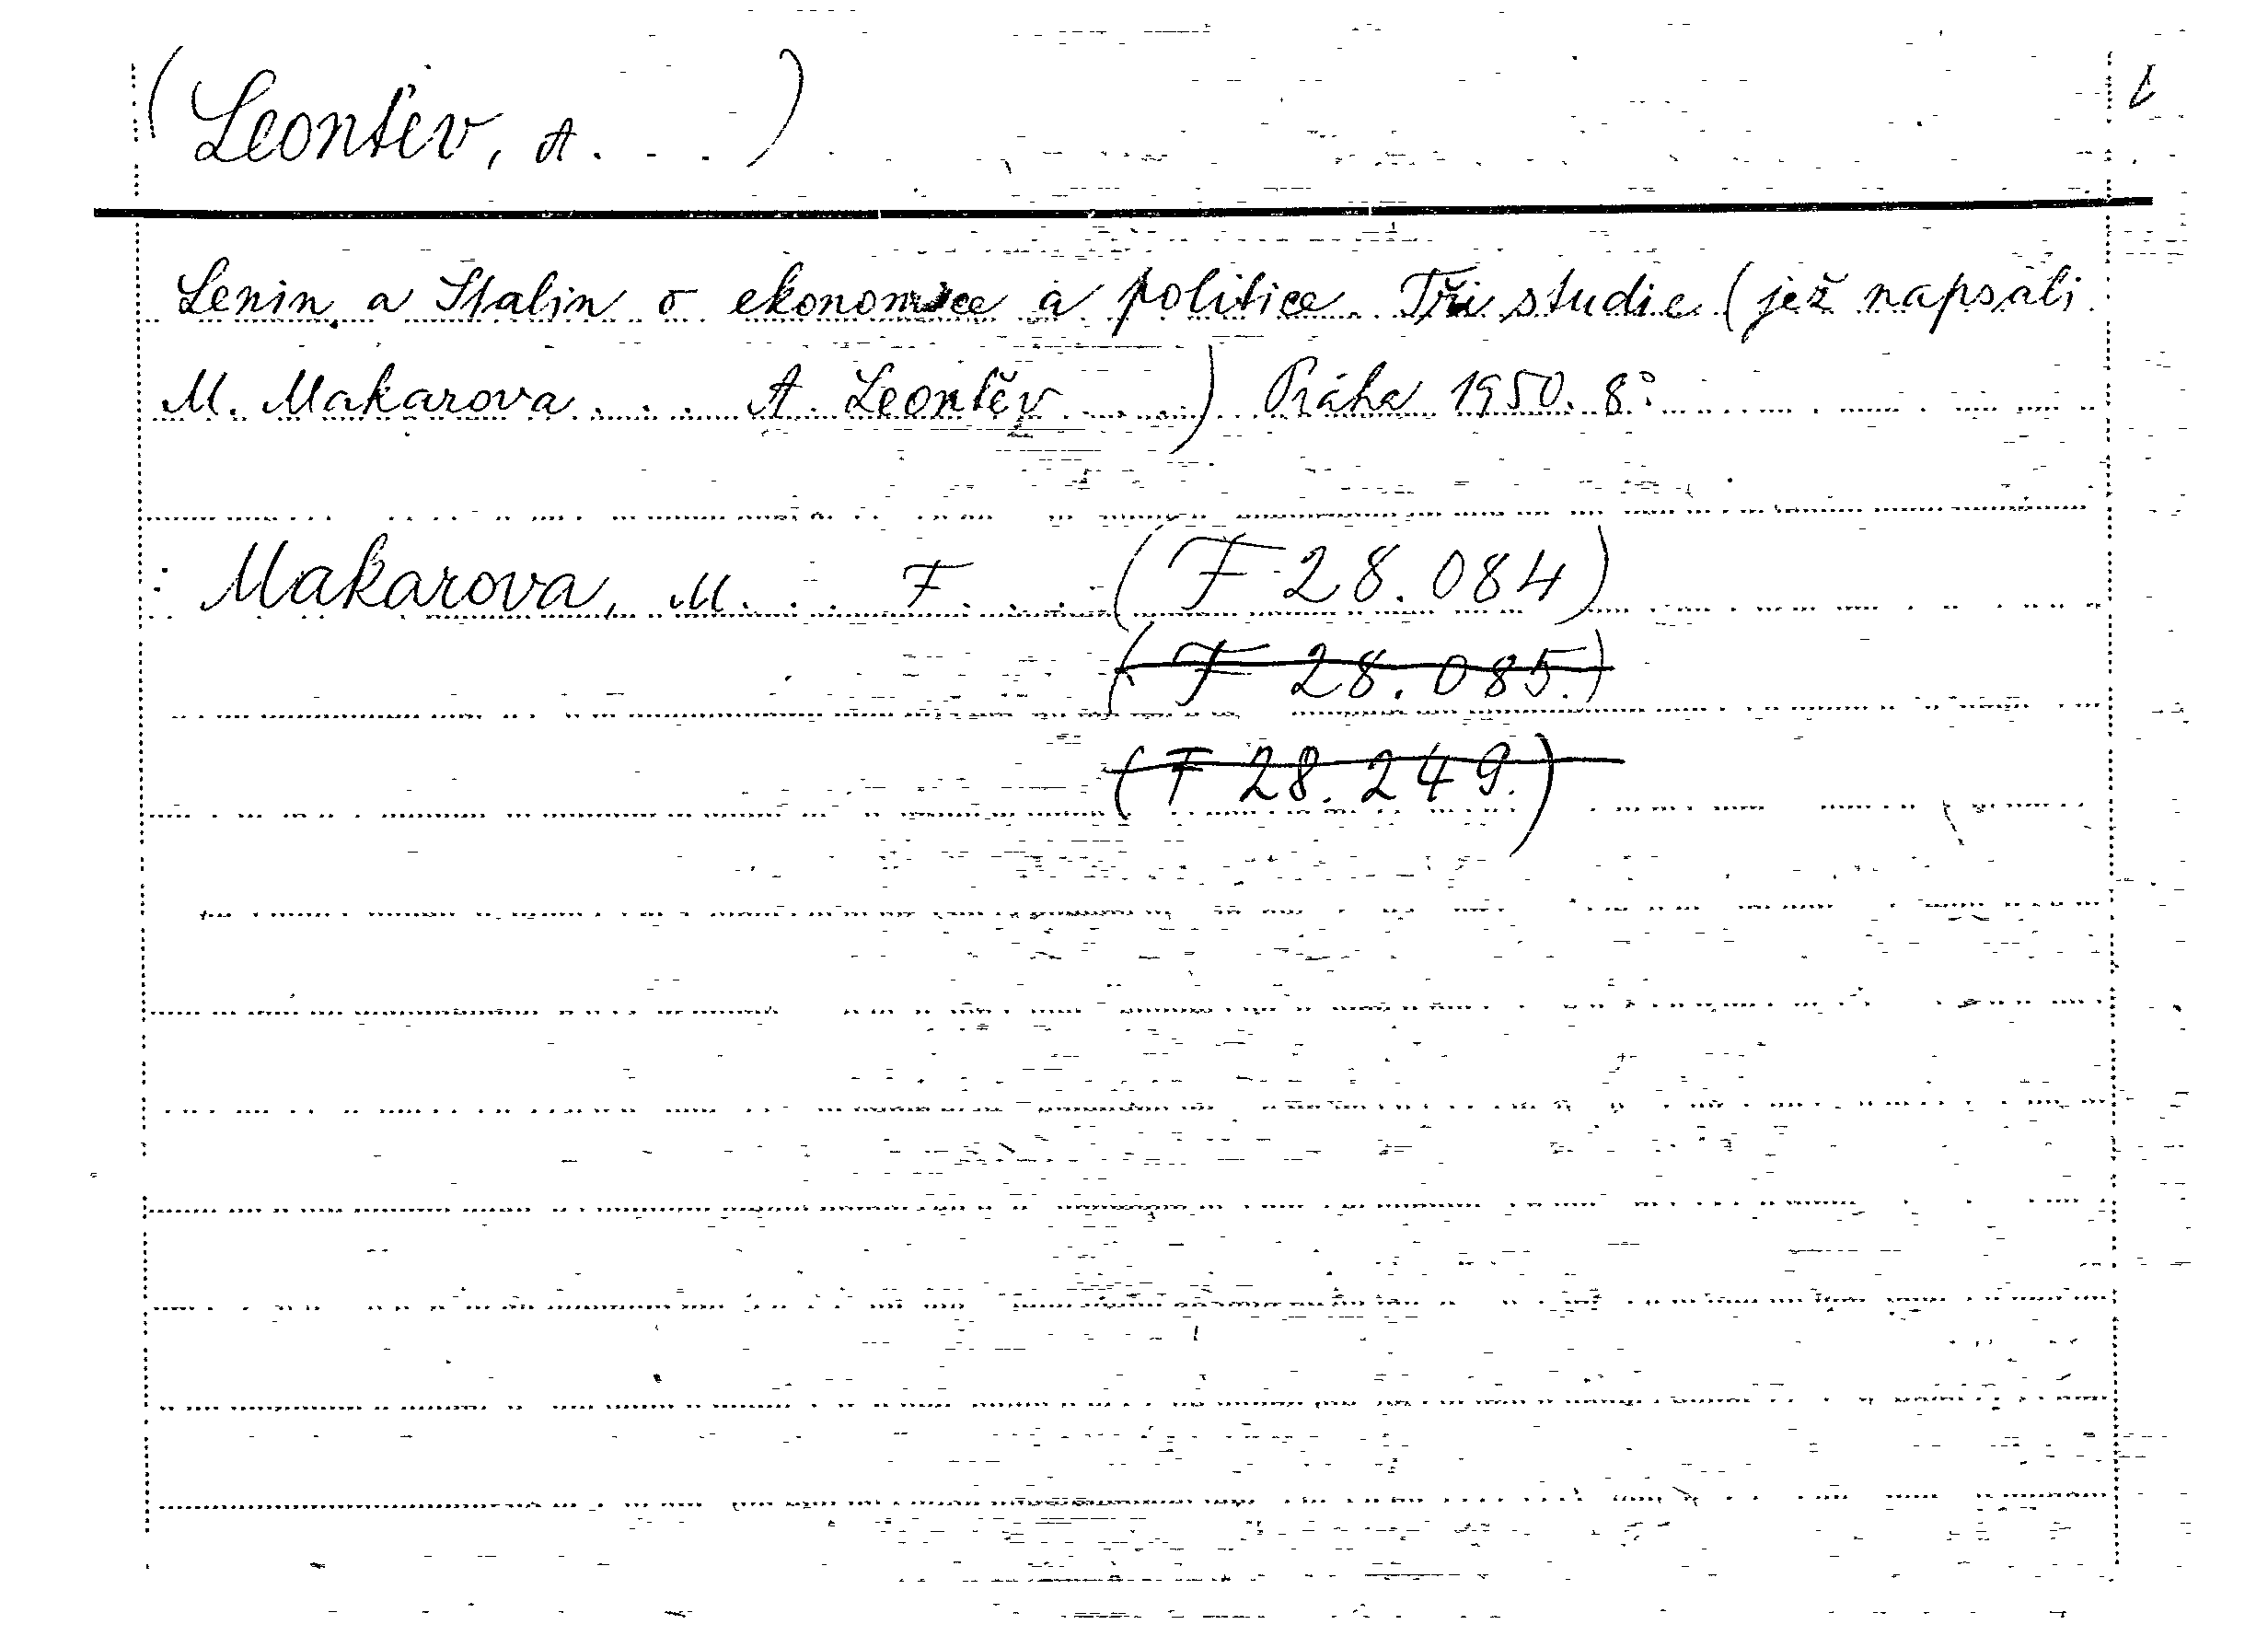 (Leontěv, A. . . )
Lenin a Stalin o ekonomice a politice. Tři studie (jež napsali
M. Makarova . . . A. Leontěv . . .) Praha 1950. 8°.
: Makarova, M. . . F . . . (F 28.084)
(F 28.085.)
(F 28.249.)